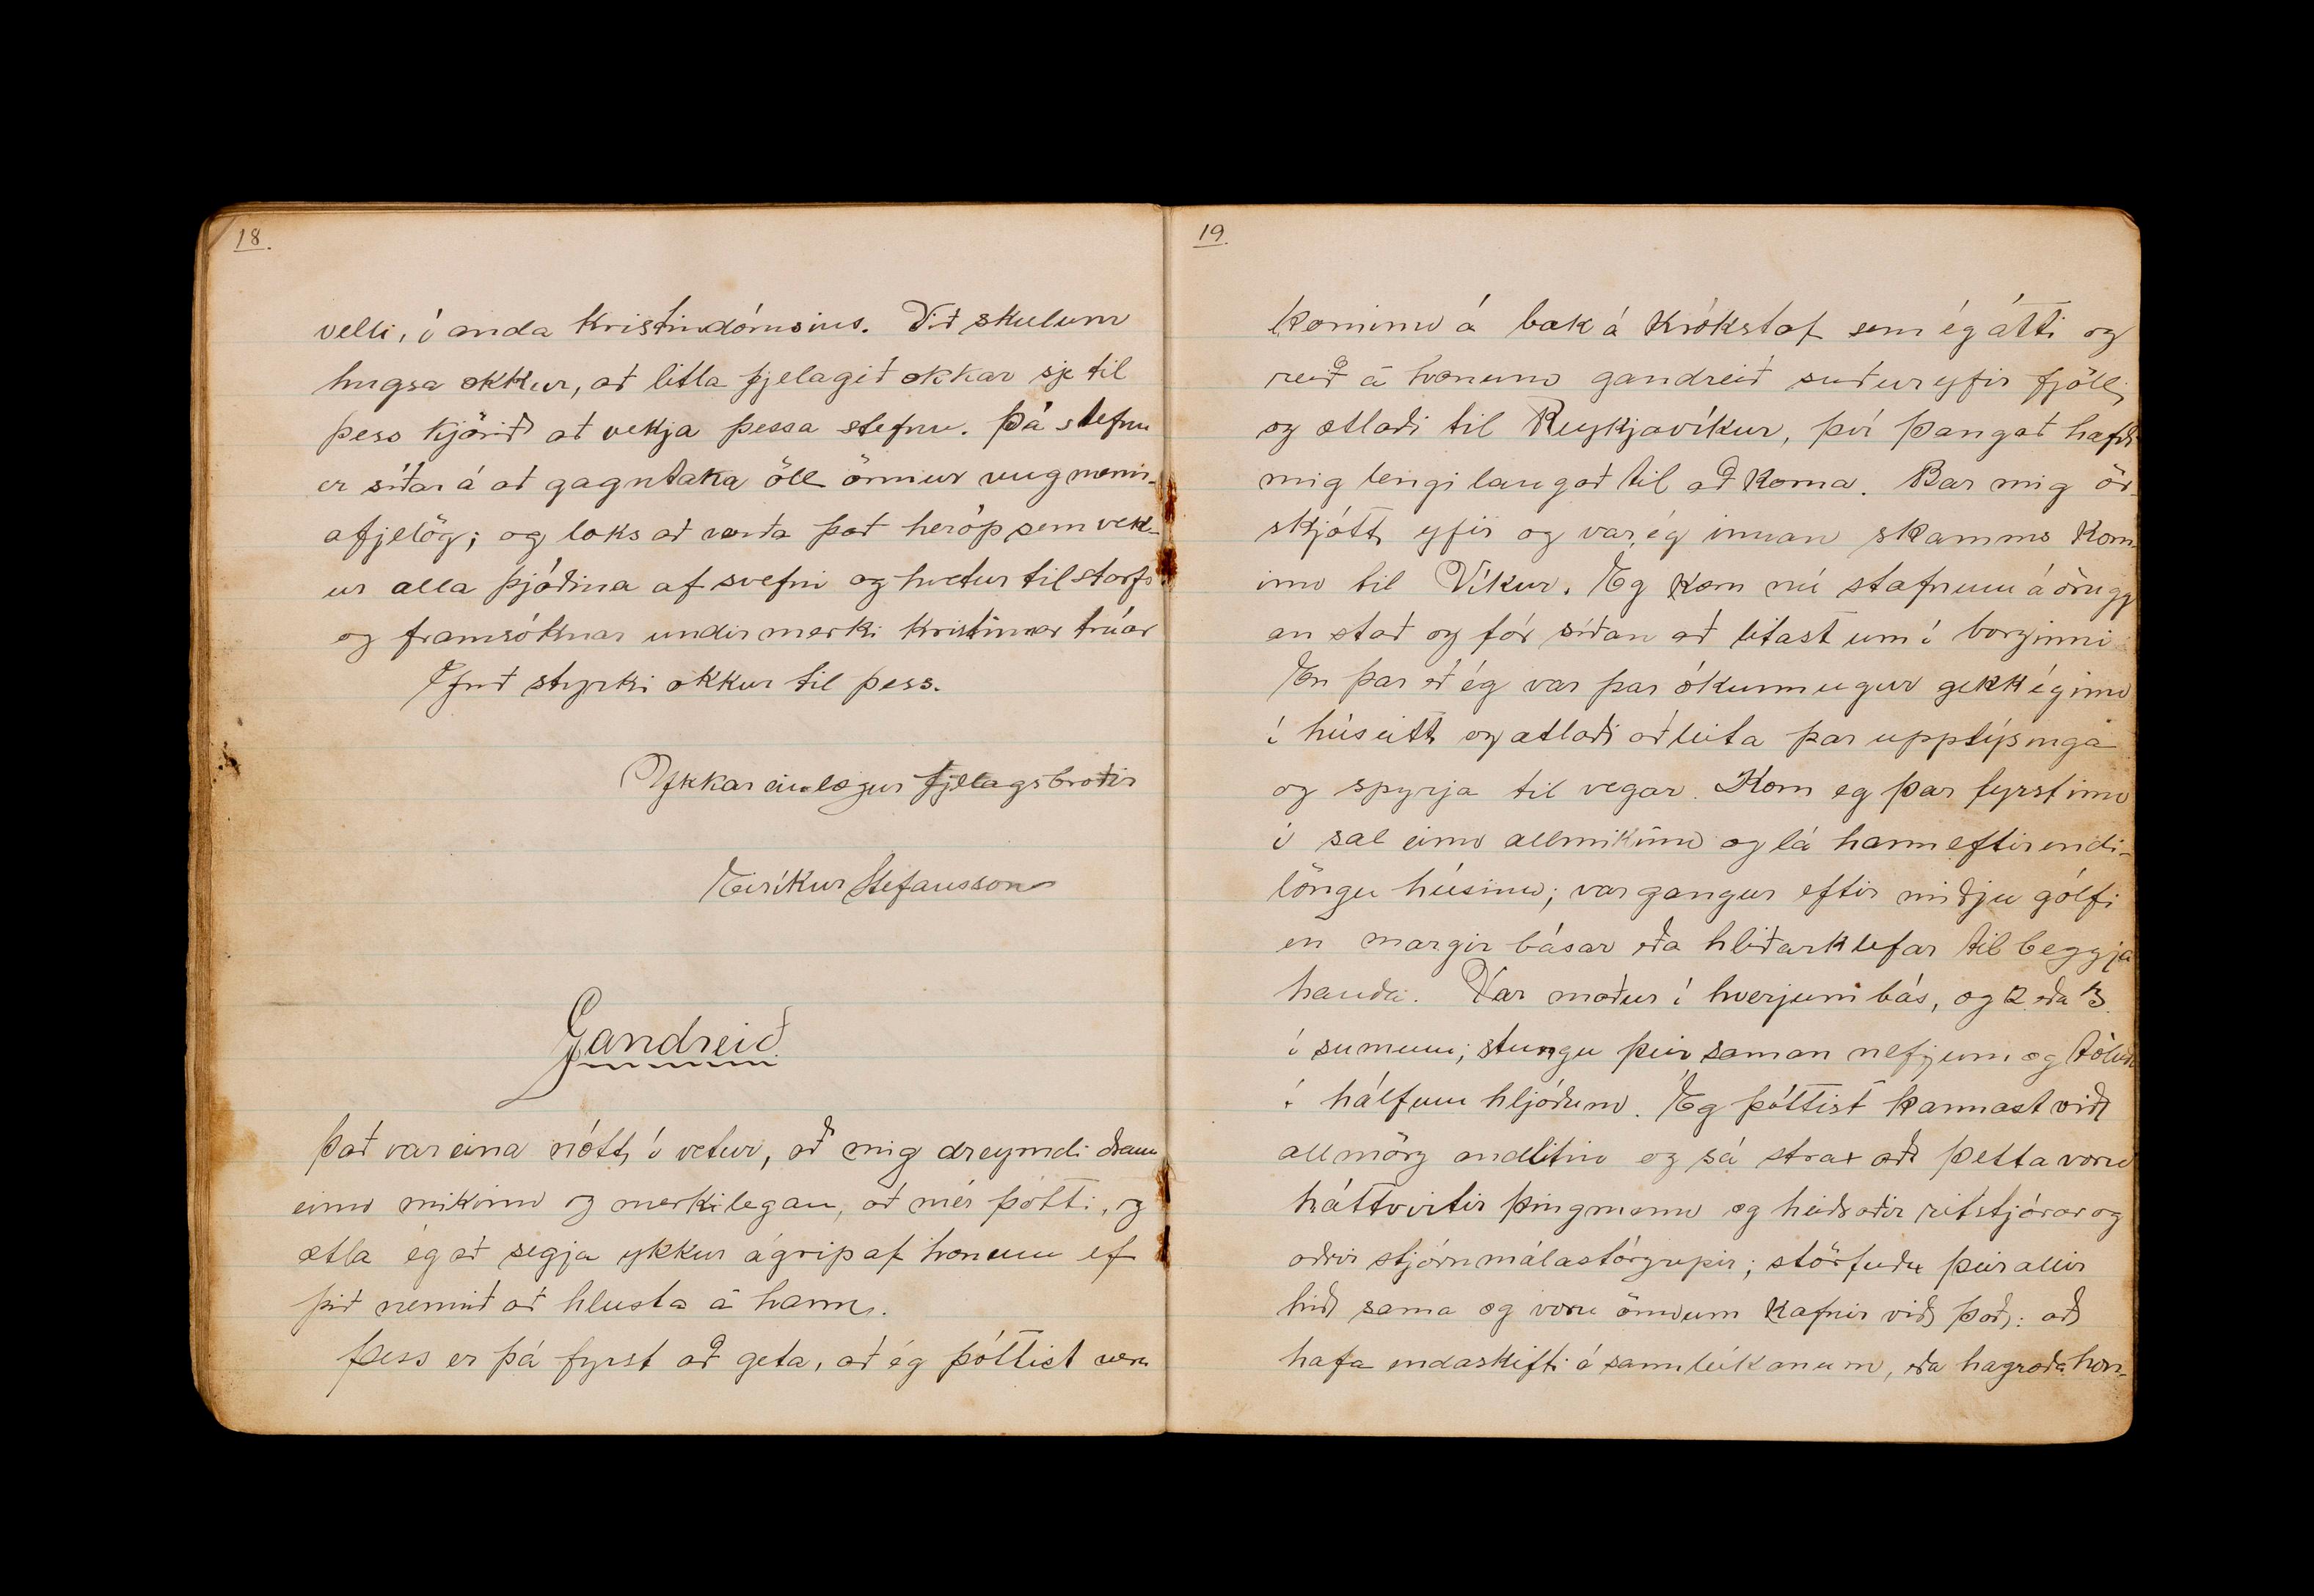 18.
velli, í anda Kristindómsins. Við skulum
hugsa okkur, að litla fjelagið okkar sje til
þess kjörið að vekja þessa stefnu. Þá stefnu
er síðar á að gagntaka öll önnur ungmenn-
afjelög; og loks að verða það heróp sem vek-
ur alla þjóðina af svefni og hvetur til starfs
og framsóknar undir merki kristinnar trúar
Guð styrki okkur til þess.
Ykkar einlægur fjelagsbróðir
Eiríkur Stefánsson
Gandreið
Það var eina nótt í vetur, að mig dreymdi draum
einn mikinn og merkilegan, að mér þótti, og
ætla ég að segja ykkur ágrip af honum ef
þið nennið að hlusta á hann.
Þess er þá fyrst að geta, að ég þóttist vera
19.
kominn á bak á Krókstaf sem ég átti og
reið á honum gandreið suður yfir fjöll,
og ætlaði til Reykjavíkur, því þangað hafði
mig lengi langað til að koma. Bar mig ör-
skjótt yfir og var ég innan skamms kom-
inn til Víkur. Eg kom nú stafnum á örugg
an stað og fór síðan að litast um í borginni
En þar eð ég var þar ókunnugur gekk ég inn
í hús eitt og ætlaði að leita þar upplýsinga
og spyrja til vegar. Kom eg þar fyrst inn
í sal einn allmikinn og lá hann eftir endi-
löngu húsinu; var gangur eftir miðju gólfi
en margir básar eða hliðarklefar til beggja
handa. Var maður í hverjum bás, og 2 eða 3
í sumum; stungu þeir saman nefjum og töluðu
í hálfum hljóðum. Eg þóttist kannast við
allmörg andlitin og sá strax að þetta voru
háttvirtir þingmenn og heiðraðir ritstjórar og
aðrir stjórnmálastórgripir; störfuðu þeir allir
hið sama og voru önnum kafnir við það: að
hafa endaskifti á sannleikanum, eða hagræða hon-